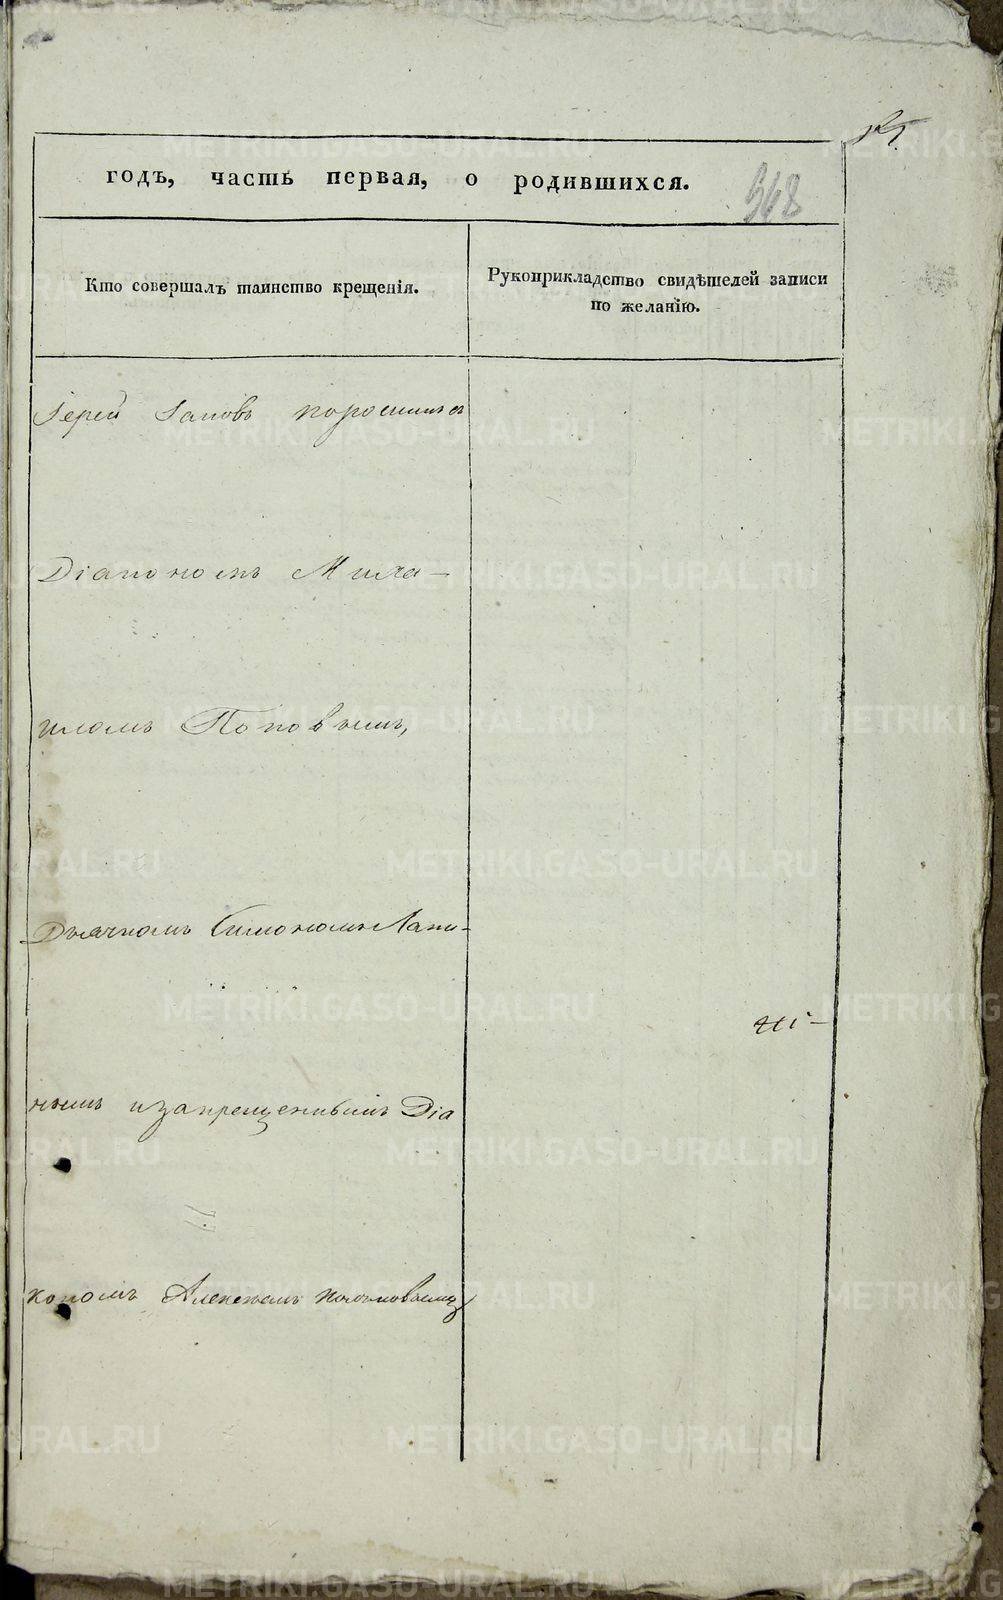 годъ, часть первая, о родившихся.
568
Кто совершалъ таинство крещенія.
Рукоприкладство свидѣтелей записи
по желанію.
Іерей Іаковъ
Діакономъ Миха-
иломъ Поповымъ,
Дьячкомъ Симономъ Лапи-
нымъ и запрещеннымъ Діа
кономъ Алексѣемъ
METRIKI.GASO-URAL.RU